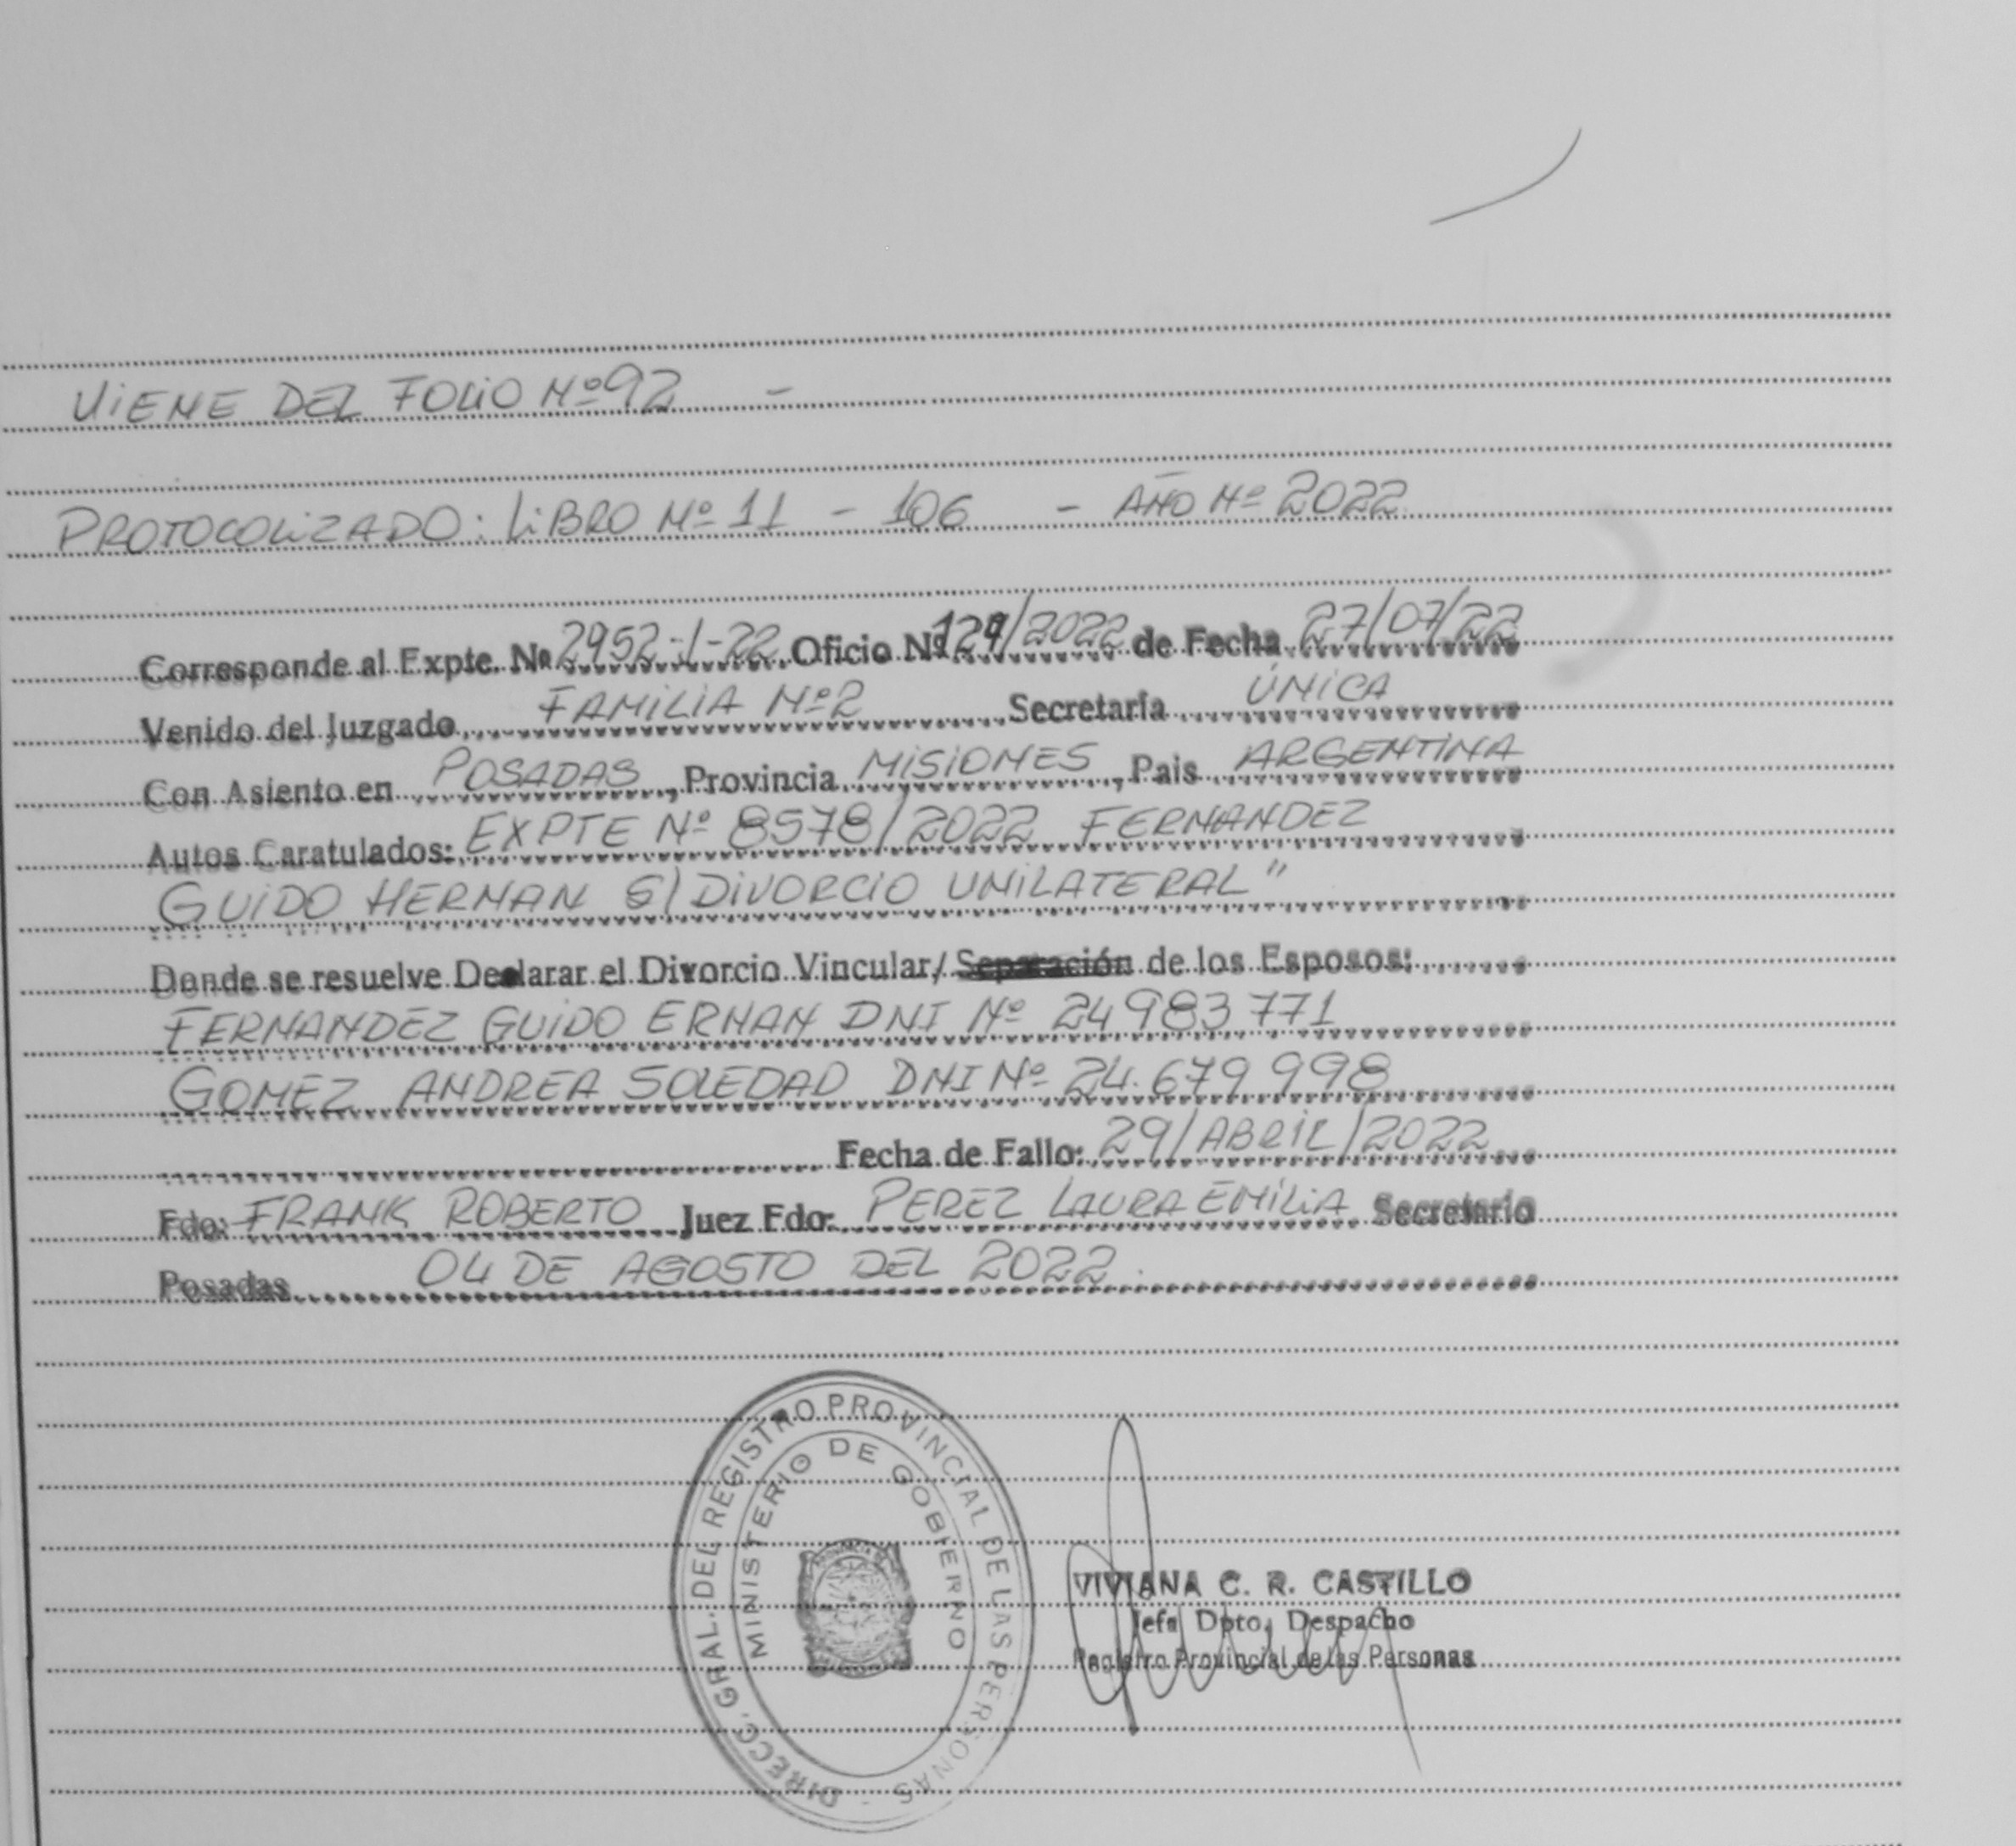 VIENE DEL FOLIO Nº 92 -
PROTOCOLIZADO: LIBRO Nº 11 - 106 - AÑO Nº 2022
Corresponde al Expte. Nº 2952-I-22 Oficio Nº 129/2022 de Fecha 27/07/22
Venido del Juzgado FAMILIA Nº2 Secretaría ÚNICA
Con Asiento en POSADAS, Provincia MISIONES, Pais ARGENTINA
Autos Caratulados: EXPTE Nº 8578/2022 FERNANDEZ
GUIDO HERNAN S/ DIVORCIO UNILATERAL"
Donde se resuelve Declarar el Divorcio Vincular/ Separación de los Esposos:
FERNANDEZ GUIDO ERNAN DNI Nº 24983771
GOMEZ ANDREA SOLEDAD DNI Nº 24.679998
Fecha de Fallo: 29/ABRIL/2022
Fdo: FRANK ROBERTO Juez Fdo: PEREZ LAURA EMILIA Secretario
Posadas 04 DE AGOSTO DEL 2022.
DIRECC. GRAL. DEL REGISTRO PROVINCIAL DE LAS PERSONAS -
MINISTERIO DE GOBIERNO
VIVIANA C. R. CASTILLO
Jefa Dpto. Despacho
Registro Provincial de las Personas